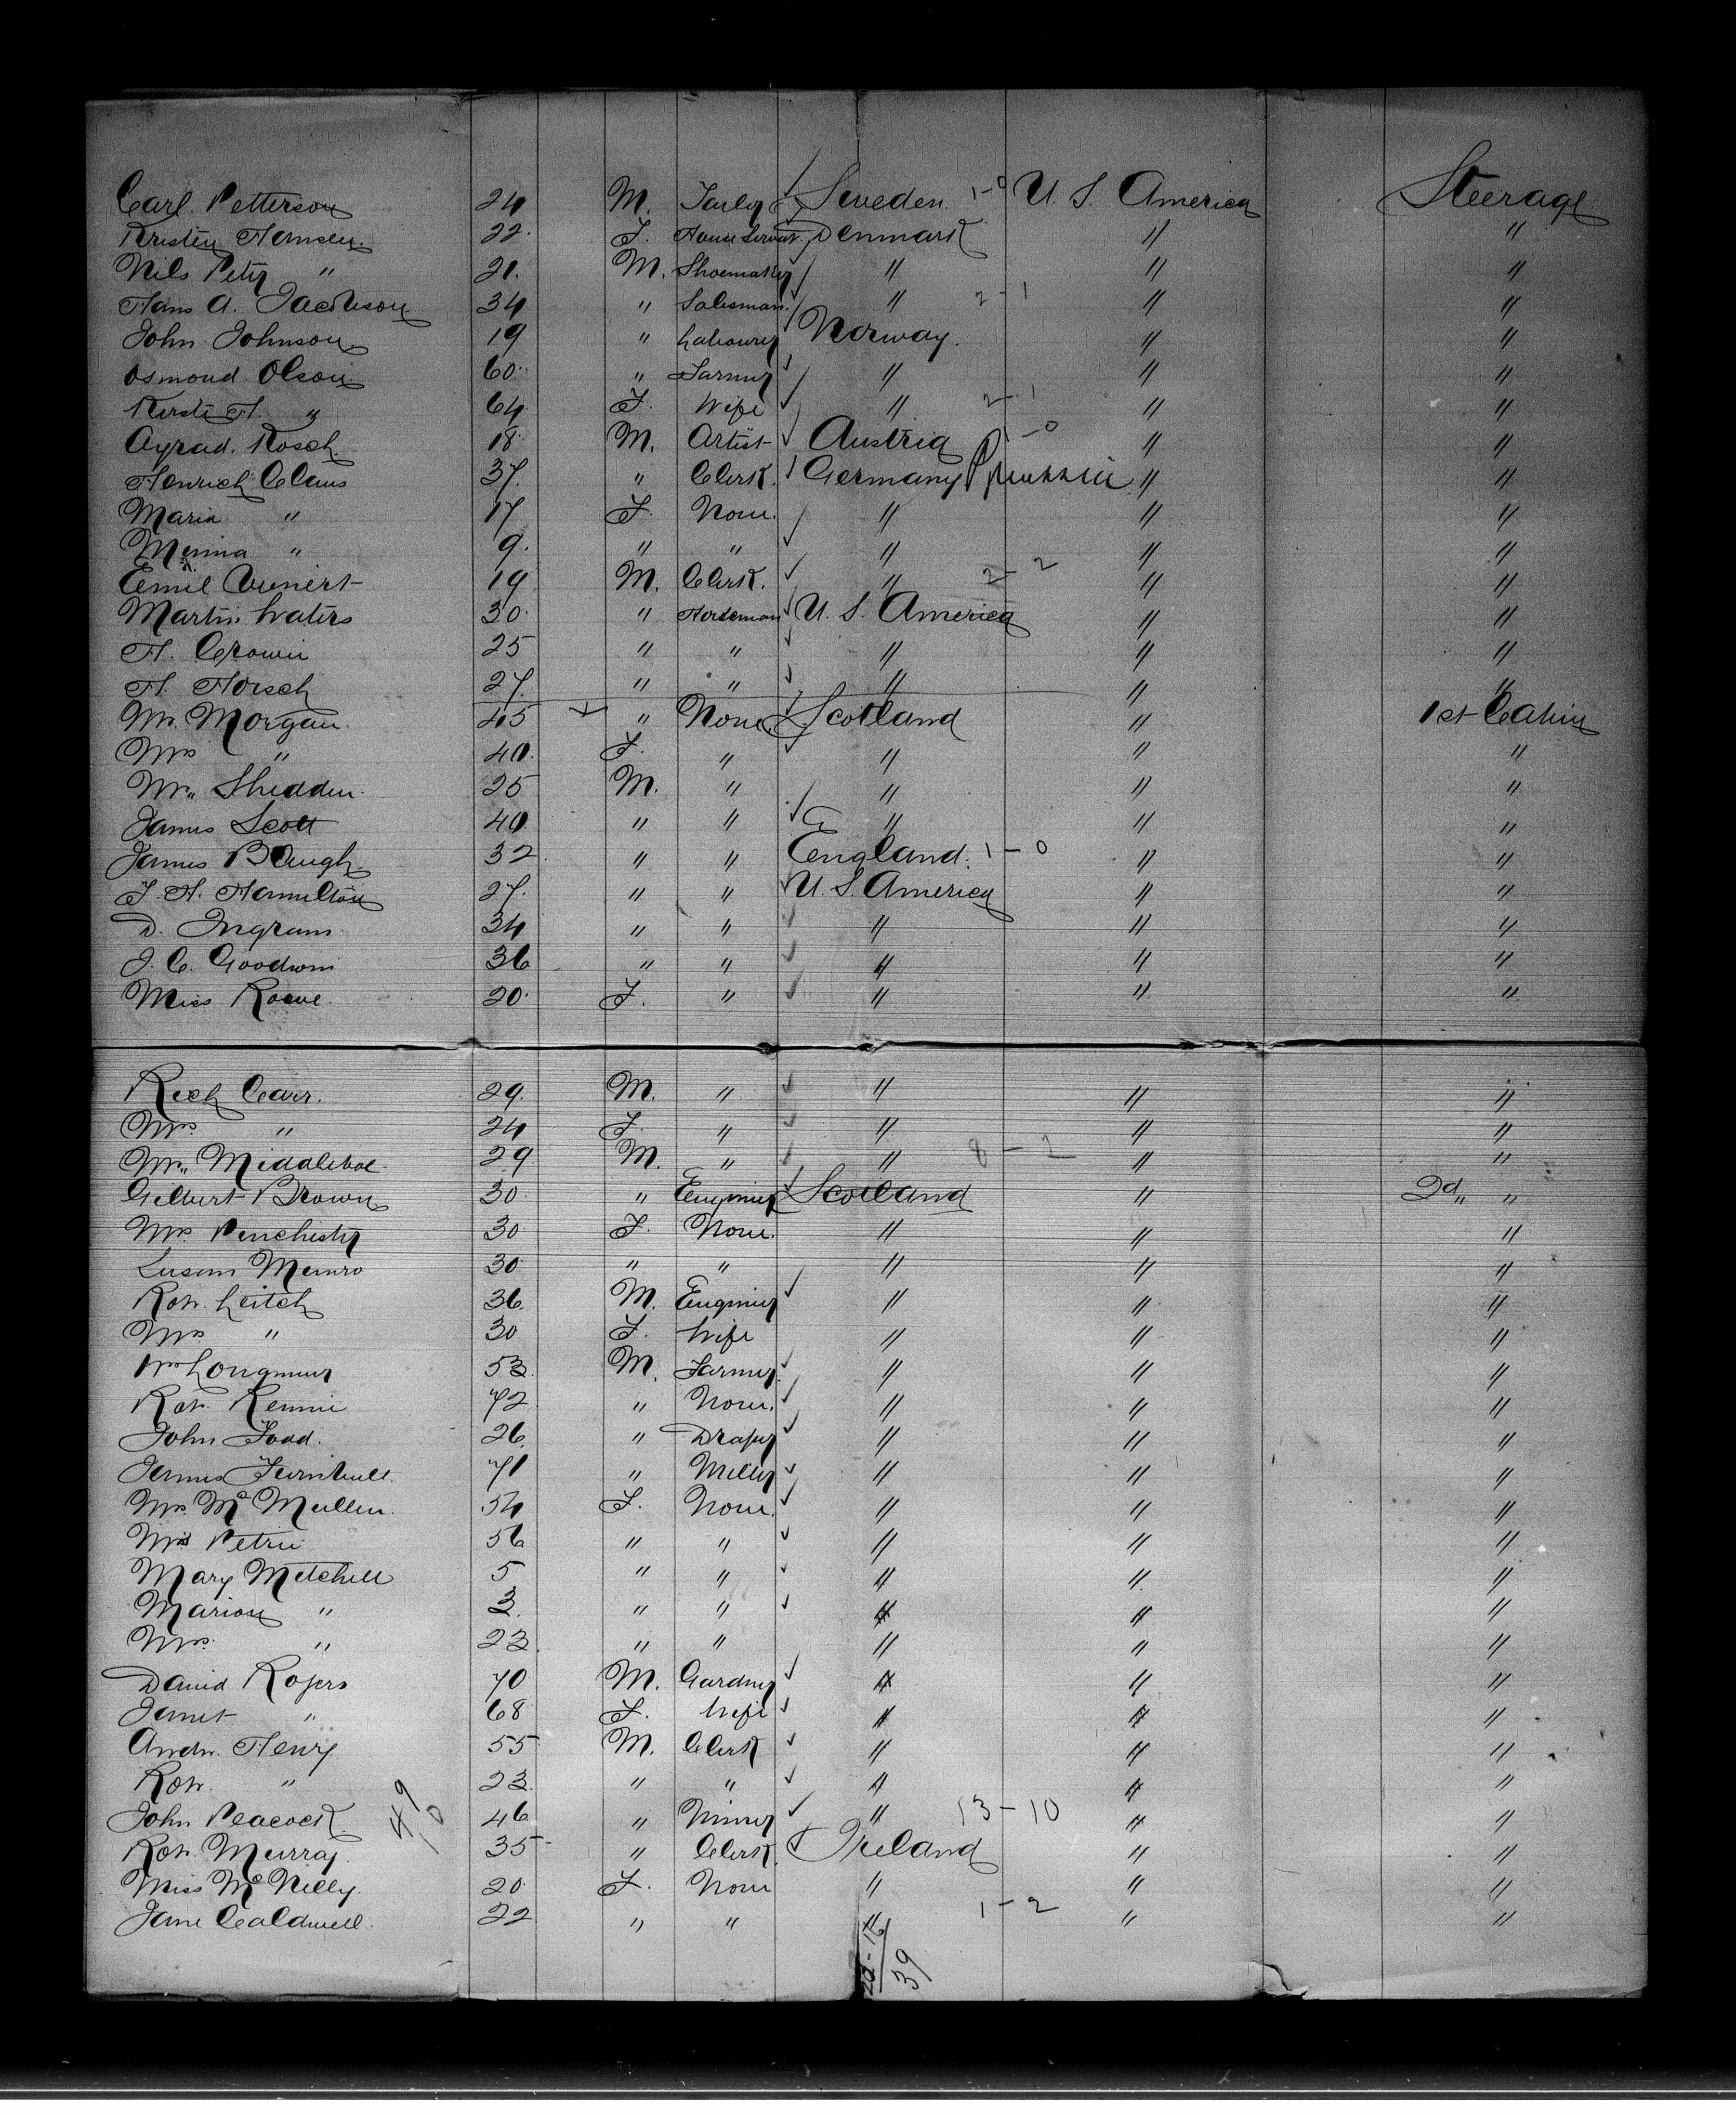 Carl Petterson 24 M. Sweden 1-0 U. S. America Steerage
Kristen Hansen. 22. F. House Servant. Denmark " "
Nils Peter " 21. M. Shoemaker " " "
Hans A. Jacobson 34 " Salesman. " 2-1 " "
John Johnson 19 " Labourer Norway. " "
Osmond Olson 60. " Farmer " " "
Kersti H. " 64 F. Wife " 2-1 " "
Rosch. 18. M. Artist Austria 1-0 " "
Henrich Claus 37. " Clerk. Germany Prussia " "
Maria " 17 F. None. " " "
Minna " 9. " " " " "
Emil 19 M. Clerk. " 2-2 " "
Martin Waters 30. " Horseman U. S. America " "
H. Crowin 25 " " " " "
H. Horsch 27. " " " " "
Mr. Morgan. 45 " None. Scotland " 1st Cabin
Mrs " 40. F. " " " "
Mr. Shedden. 25 M. " " " "
James Scott 40. " " " " "
James Baugh. 32. " " England. 1-0 " "
J. H. Hamilton 27. " " U. S. America " "
D. Ingram. 34 " " " " "
J. C. Goodwin 36 " " " " "
Miss 20. F. " " " "
Rich Carr. 29. M. " " " "
Mrs. " 24 F. " " " "
Mr. 29 M. " " 8-2 " "
Gilbert Brown 30. " Engineer Scotland " 2d "
Mrs. 30 F. None. " " "
Susan Munro 30. " " " " "
Robt. Leitch 36. M. Engineer " " "
Mrs " 30 F. Wife " " "
Wm Longmuir 53 M. Farmer. " " "
Robt. Rennie 72 " None. " " "
John Todd. 26. " Draper " " "
James Turnbull. 71 " Miller " " "
Mrs. McMullen. 54 F. None. " " "
Mrs Petrie 56 " " " " "
Mary Mitchell 5 " " " " "
Marion " 3. " " " " "
Mrs. " 23. " " " " "
David Rogers 70 M. Gardner " " "
Janet " 68 F. Wife " " "
Andw. Henry 55 M. Clerk " " "
Robt. " 23. " " " " "
John Peacock. 49 10 46 " Miner " 13-10 " "
Robt. Murray. 35 " Clerk. Ireland " "
Miss McNelly. 20. F. None " " "
Jane Caldwell. 22 " " " 1-2 " "
39